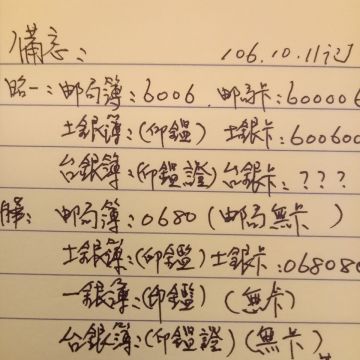 備忘： 106.10.11記
昭一：邮局簿：6006 邮局卡：600006
土銀簿：(印鑑) 土銀卡：600600
台銀簿：(印鑑證) 台銀卡：???
邮局簿：0680 (邮局無卡)
土銀簿：(印鑑) 土銀卡：068080
一銀簿：(印鑑) (無卡)
台銀簿：(印鑑證) (無卡)